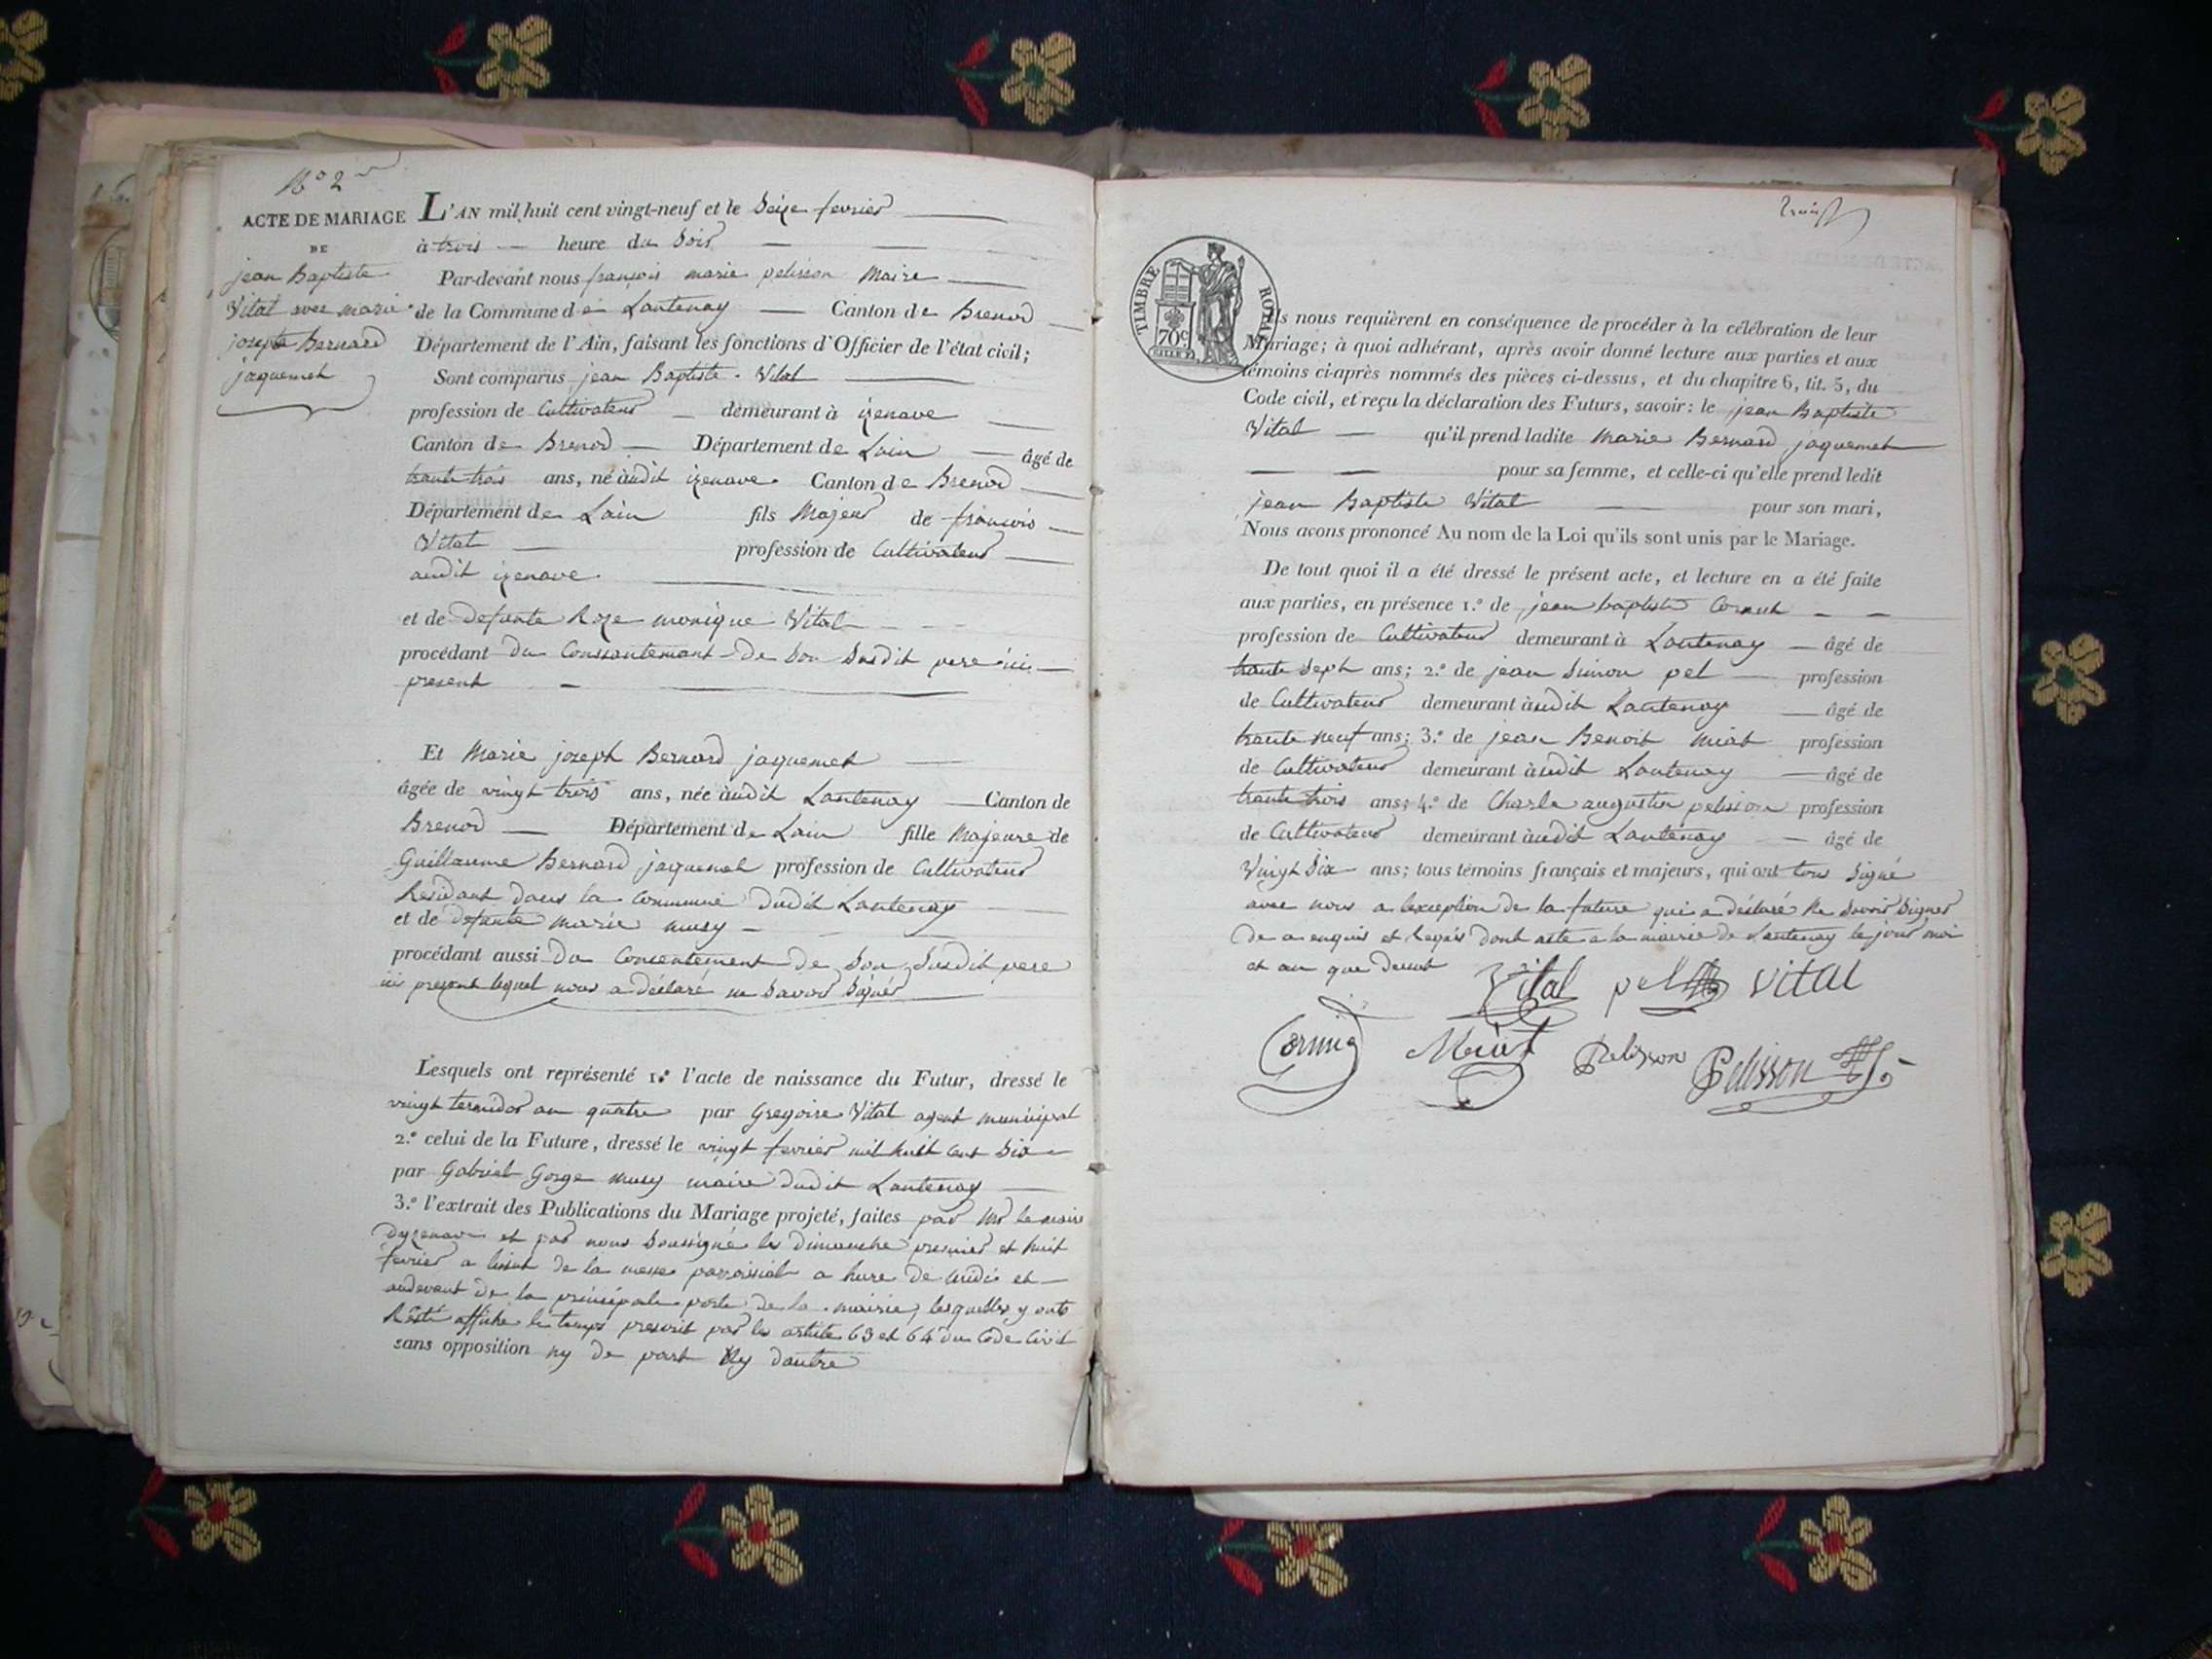 N° 2
ACTE DE MARIAGE
DE
jean Baptiste
Vital avec marie
joseph Bernard
jaquemet
L'AN mil huit cent vingt-neuf et le Seize fevrier
à trois heure du Soir
Par-devant nous françois marie pelisson Maire
de la Commune de Lantenay Canton de Brenod
Département de l'Ain, faisant les fonctions d'Officier de l'état civil;
Sont comparus jean Baptiste Vital
profession de Cultivateur demeurant à izenave
Canton de Brenod Département de Lain âgé de
trante trois ans, né àudit izenave Canton de Brenod
Département de Lain fils Majeur de françois
Vital profession de Cultivateur
audit izenave
et de defunte Roze monique Vital
procédant du Consantemant de Son Susdit pere ici
present
Et Marie joseph Bernard jaquemet
âgée de vingt trois ans, née àudit Lantenay Canton de
Brenod Département de Lain fille Majeure de
Guillaume Bernard jaquemet profession de Cultivateur
Residant dans la Commune dudit Lantenay
et de defunte marie musy
procédant aussi du Consentement de Son Susdit pere
ici present lequel nous a déclaré ne Savoir Signer
Lesquels ont représenté 1.° l'acte de naissance du Futur, dressé le
vingt termidor an quatre par Gregoire Vital agent municipal
2.° celui de la Future, dressé le vingt fevrier mil huit cent Six
par Gabriel Gorge musy maire dudit Lantenay
3.° l'extrait des Publications du Mariage projeté, faites par Mr le maire
dyzenave et par nous Soussigné les Dimanche premier et huit
fevrier a lissut de la messe parroissial a hure de midi et
audevant de la principale porte de la mairie, lesquelles y ont
Resté affiché le temps prescrit par les article 63 et 64 du Code Civil
sans opposition ny de part Ny dautre
TIMBRE ROYAL
70c
Ils nous requièrent en conséquence de procéder à la célébration de leur
Mariage; à quoi adhérant, après avoir donné lecture aux parties et aux
témoins ci-après nommés des pièces ci-dessus, et du chapitre 6, tit. 5, du
Code civil, et reçu la déclaration des Futurs, savoir: le jean Baptiste
Vital qu'il prend ladite Marie Bernard jaquemet
pour sa femme, et celle-ci qu'elle prend ledit
jean Baptiste Vital pour son mari,
Nous avons prononcé Au nom de la Loi qu'ils sont unis par le Mariage.
De tout quoi il a été dressé le présent acte, et lecture en a été faite
aux parties, en présence 1.° de jean baptiste
profession de Cultivateur demeurant à Lantenay âgé de
trante Sept ans; 2.° de jean Simon pel profession
de Cultivateur demeurant àudit Lantenay âgé de
trante neuf ans; 3.° de jean Benoit miat profession
de Cultivateur demeurant àudit Lantenay âgé de
trante trois ans; 4.° de Charle augustin pelisson profession
de Cultivateur demeurant àudit Lantenay âgé de
Vingt Six ans; tous témoins français et majeurs, qui ont tous Signé
avec nous a lexception de la future qui a déclaré Ne Savoir Signer
de a enquis et Requis dont acte a la mairie de Lantenay le jour moi
et an que dessus
Vital pel Vital
Pelisson Pelisson